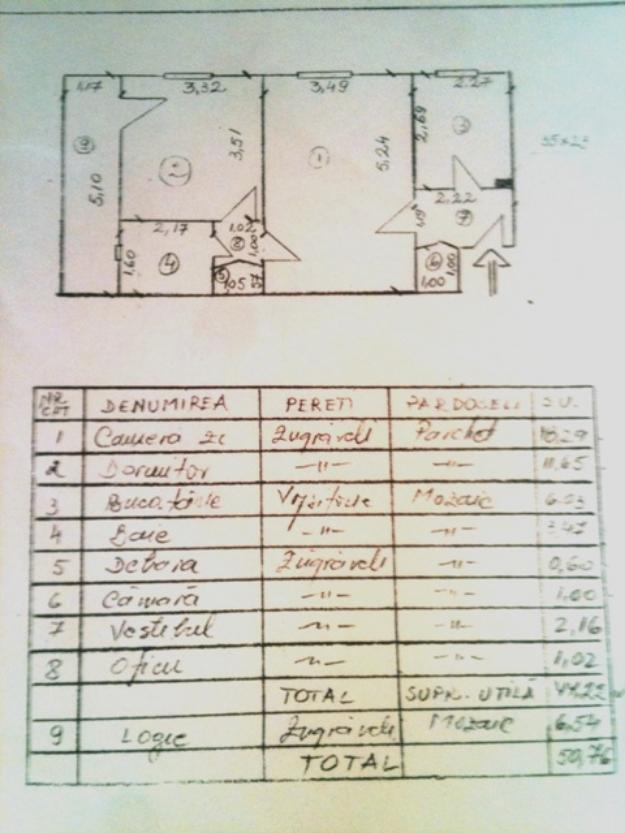 1,17 3,32 3,49 2.27
9 5,10 2 3,51 1 5,24 2,69 3
2,22
2,17 1,02 1,19 7
1,60 4 8 1,00 6 1,00
5 1,05 57 1,00
NR CRT DENUMIREA PERETI PARDOSELI S.U.
1 Camera zi Zugráveli Parchet 18,29
2 Dormitor —"— —"— 11,65
3 Bucatárie Mozaic 6.03
4 Baie —"— —"— 3,47
5 Debara Zugráveli —"— 0,60
6 Cámará —"— —"— 1,00
7 Vestibul —"— —"— 2,16
8 Oficiu —"— —"— 1,02
TOTAL SUPR. UTILĂ 44,22
9 Logie Zugráveli Mozaic 6,54
TOTAL 50,76